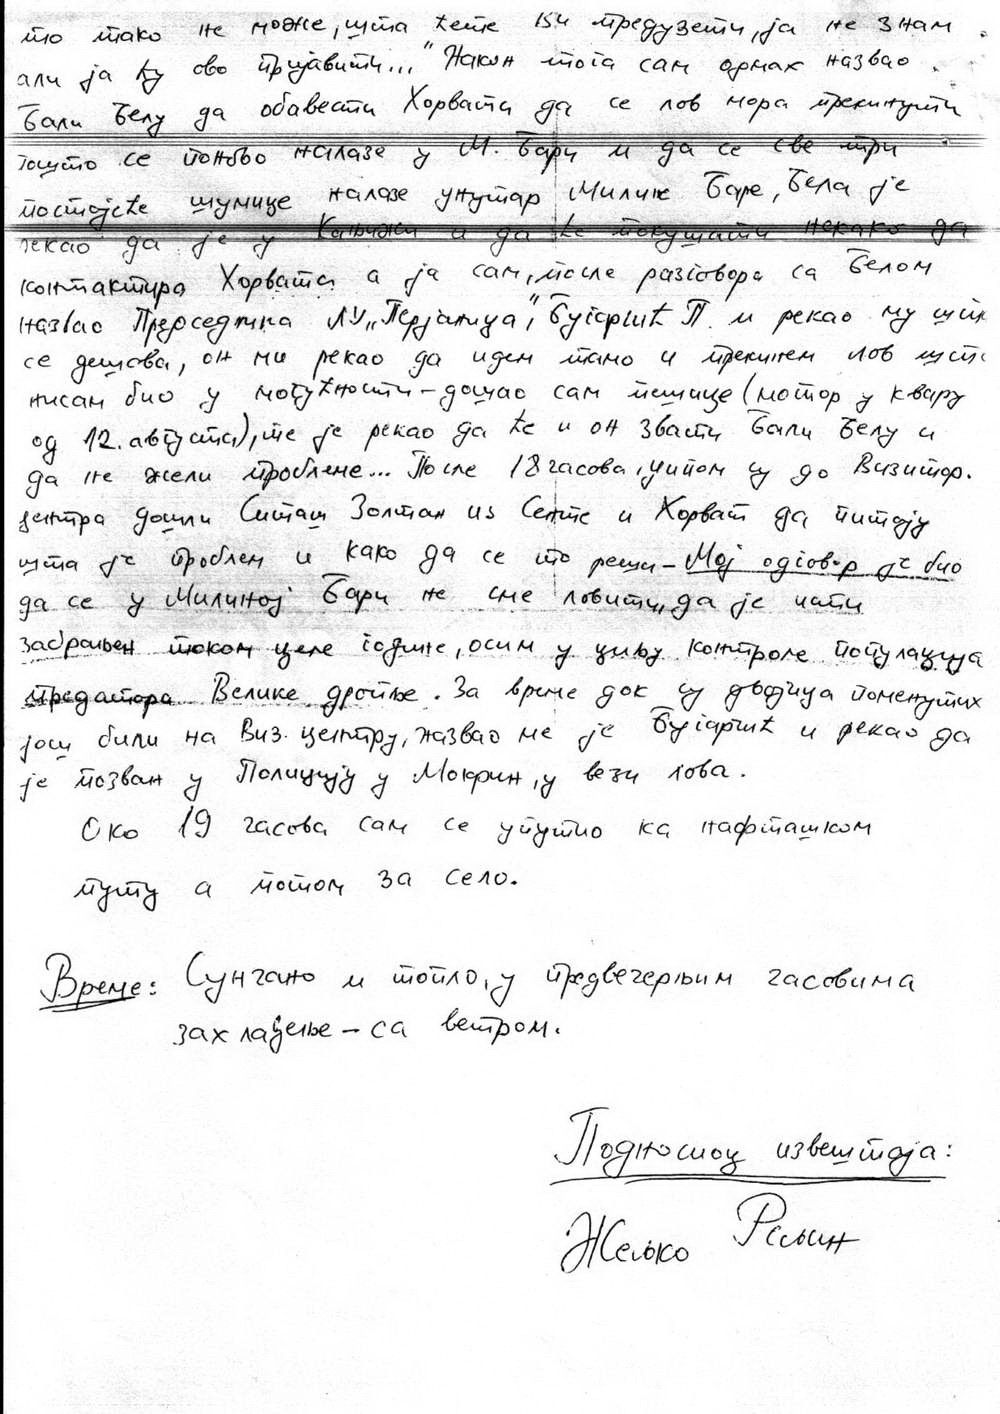 то тако не може, шта ћете ви предузети, ја не знам
али ја ћу ово пријавити..." Након тога сам одмах назвао
Бали Белу да обавести Хорвата да се лов мора прекинути
пошто се поново налазе у М. Бари и да се све три
постојеће шумице налазе унутар Милине Баре, Бела је
рекао да је у Кањижи и да ће покушати некако да
контактира Хорвата а ја сам, после разговора са Белом
назвао Председника ЛУ „Перјаница", Бугарчић П. и рекао му шта
се дешава, он ми рекао да идем тамо и прекинем лов што
нисам био у могућности - дошао сам пешице (мотор у квару
од 12. августа), те је рекао да ће и он звати Бали Белу и
да не жели проблеме... После 18 часова, џипом су до Визитор.
центра дошли Ситаш Золтан из Сенте и Хорват да питају
шта је проблем и како да се то реши - Мој одговор је био
да се у Милиној Бари не сме ловити, да је исти
забрањен током целе године, осим у циљу контроле популација
предатора Велике дропље. За време док су двојица поменутих
још били на Виз. центру, назвао ме је Бугарчић и рекао да
је позван у Полицију у Мокрин, у вези лова.
Око 19 часова сам се упутио ка нафташком
путу а потом за село.
Време: Сунчано и топло, у предвечерњим часовима
захлађење - са ветром.
Подносиоц извештаја:
Жељко